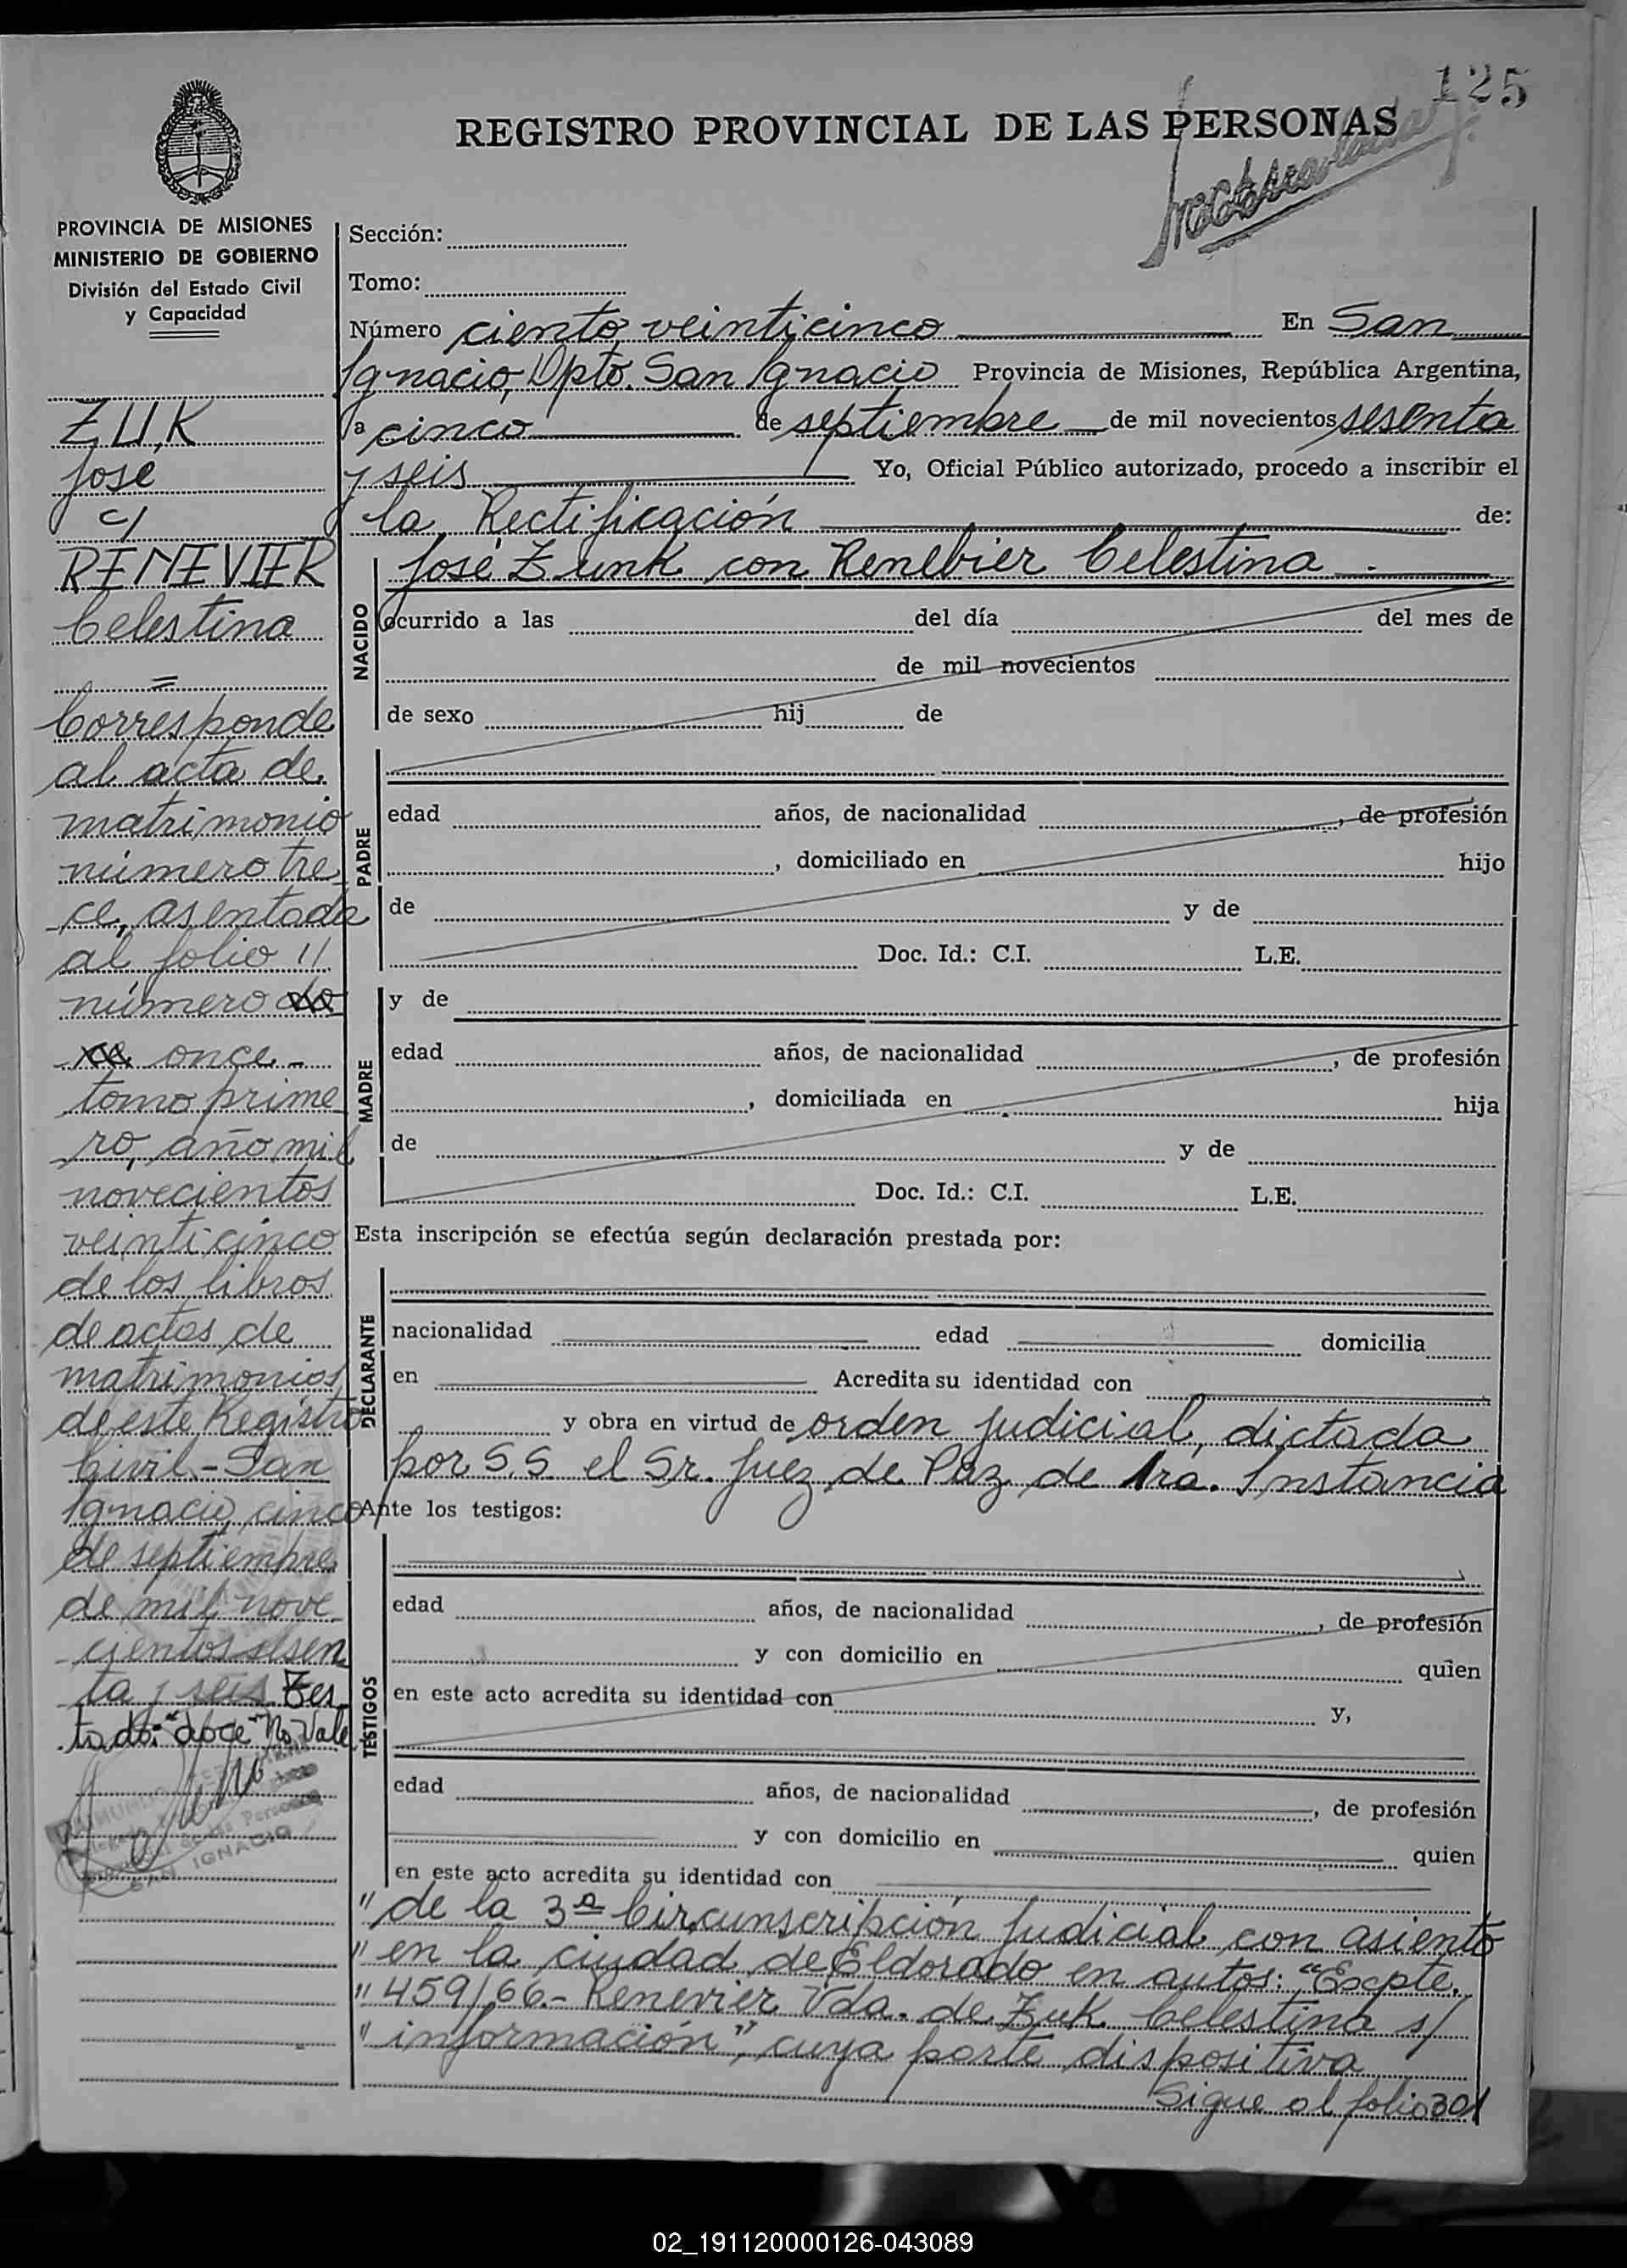 125
REGISTRO PROVINCIAL DE LAS PERSONAS
PROVINCIA DE MISIONES
MINISTERIO DE GOBIERNO
División del Estado Civil
y Capacidad
ZUK
José
c/
RENEVIER
Celestina
=
Corresponde
al acta de
matrimonio
número tre
ce, asentada
al folio 11
número
once -
tomo prime
ro, año mil
novecientos
veinticinco
de los libros
de actas de
matrimonios
de este Registro
Civil - San
Ignacio, cinco
de septiembre
de mil nove
cientos sesen
ta y seis Tes
tado: "doce" No Vale
SAN IGNACIO
Sección:
Tomo:
Número ciento veinticinco En San
Ignacio, Dpto. San Ignacio Provincia de Misiones, República Argentina,
a cinco de septiembre de mil novecientos sesenta
y seis Yo, Oficial Público autorizado, procedo a inscribir el
la Rectificación de:
José Zunk con Renebier Celestina .
NACIDO
ocurrido a las del día del mes de
de mil novecientos
de sexo hij de
PADRE
edad años, de nacionalidad , de profesión
, domiciliado en hijo
de y de
Doc. Id.: C.I. L.E.
MADRE
y de
edad años, de nacionalidad , de profesión
, domiciliada en hija
de y de
Doc. Id.: C.I. L.E.
Esta inscripción se efectúa según declaración prestada por:
DECLARANTE
nacionalidad edad domicilia
en Acredita su identidad con
y obra en virtud de orden judicial, dictada
por S.S. el Sr. Juez de Paz de 1ra. Instancia
Ante los testigos:
TESTIGOS
edad años, de nacionalidad , de profesión
y con domicilio en quien
en este acto acredita su identidad con y,
edad años, de nacionalidad , de profesión
y con domicilio en quien
en este acto acredita su identidad con
" de la 3ª Circunscripción Judicial con asiento
" en la ciudad de Eldorado en autos: "Expte.
" 459/66.- Renevier Vda. de Zuk Celestina s/
" información", cuya parte dispositiva
Sigue al folio 301
02_191120000126-043089